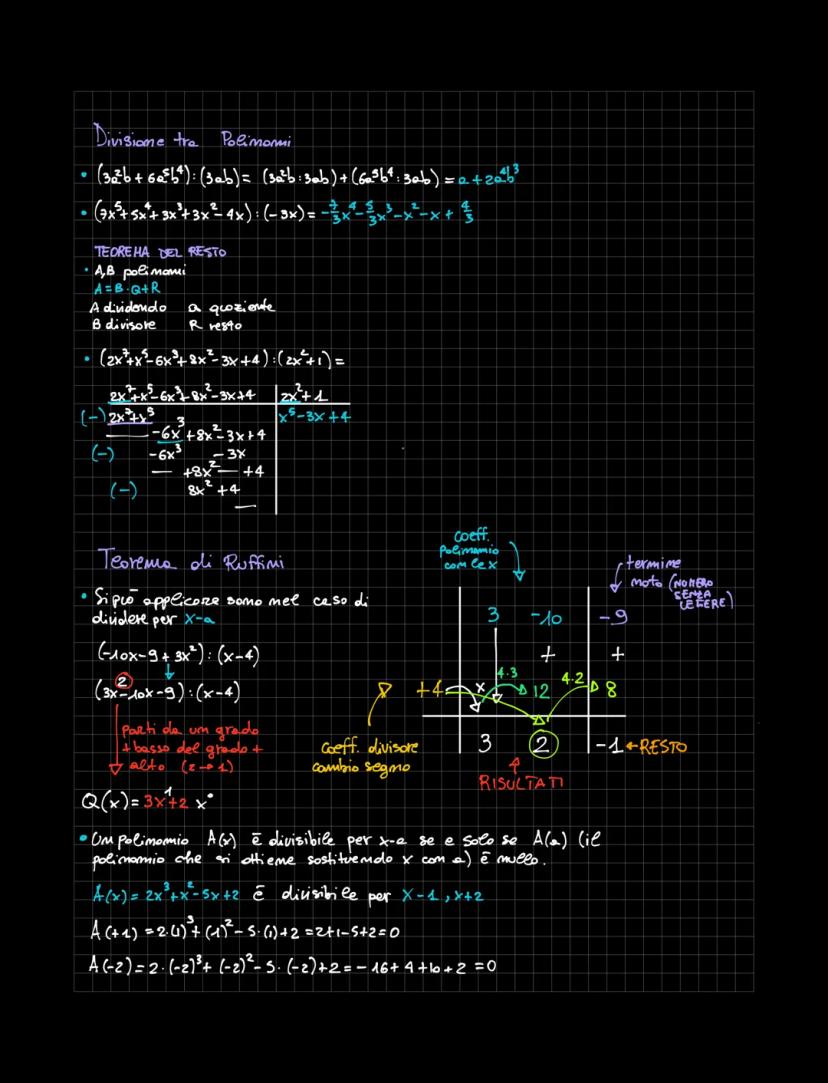 Divisione tra Polinomi
• (3a²b + 6a⁵b⁴) : (3ab) = (3a²b : 3ab) + (6a⁵b⁴ : 3ab) = a + 2a⁴b³
• (7x⁵ + 5x⁴ + 3x³ + 3x² - 4x) : (-3x) = -7/3x⁴ - 5/3x³ - x² - x + 4/3
TEOREMA DEL RESTO
• A,B polinomi
A = B · Q + R
A dividendo Q quoziente
B divisore R resto
• (2x⁷+x⁵-6x³+8x²-3x+4) : (2x²+1) =
2x⁷+x⁵-6x³+8x²-3x+4 2x²+1
(-) 2x⁷+x⁵ x⁵-3x+4
-6x³+8x²-3x+4
(-) -6x³ -3x
+8x² +4
(-) 8x²+4
Teorema di Ruffini
• Si può applicare sono nel caso di
dividere per x-a
(-10x-9+3x²) : (x-4)
(3x²-10x-9) : (x-4)
parti da un grado
+ basso del grado +
alto (2→1)
Q(x) = 3x¹+2 x⁰
coeff.
polinomio
con le x
termine
noto (NUMERO
SENZA
LETTERE)
3 -10 -9
+ +
4.3 4.2
+4 x 12 8
coeff. divisore
cambio segno
3 2 -1 ← RESTO
RISULTATI
• Un polinomio A(x) è divisibile per x-a se e solo se A(a) (il
polinomio che si ottiene sostituendo x con a) è nullo.
A(x) = 2x³+x²-5x+2 è divisibile per x-1, x+2
A(+1) = 2·(1)³+(1)²-5·(1)+2 = 2+1-5+2=0
A(-2) = 2·(-2)³+(-2)²-5·(-2)+2 = -16+4+10+2 =0